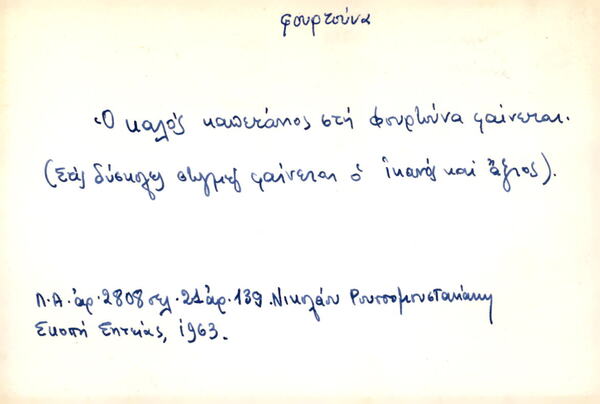 φουρτούνα
Ὁ καλός καπετάνιος στή φουρτούνα φαίνεται.
(Στάς δύσκολες στιγμές φαίνεται ὁ ἱκανός καί ἄξιος).
Λ.Α. ἀρ. 2808 σελ. 21 ἀρ. 139. Νικολάου Ρουσσομουστακάκη
Σκοπή Σητείας, 1963.